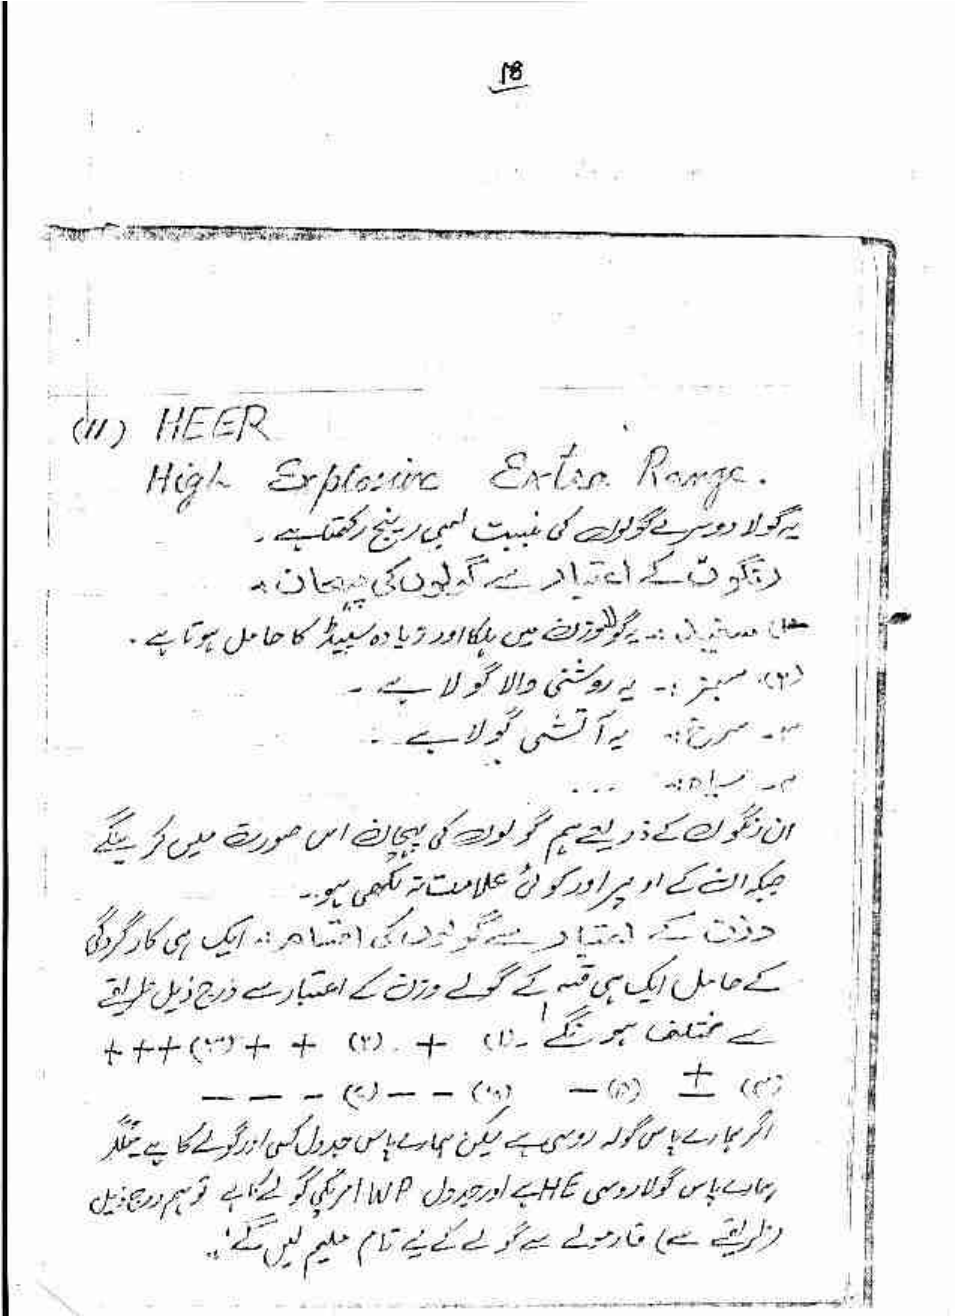 18
(11) HEER
High Explosive Extra Range.
یہ گولا دوسرے گولوں کی نسبت لمبی رینج رکھتا ہے۔
رنگوں کے اعتبار سے گولوں کی پہچان :۔
سفید :۔ یہ گولا وزن میں ہلکا اور زیادہ سپیڈ کا حامل ہوتا ہے۔
(۲)۔ سبز :۔ یہ روشنی والا گولا ہے ۔
۳۔ سرخ :۔ یہ آتشی گولا ہے ۔
۴۔ سیاہ :۔ ....
ان رنگوں کے ذریعے ہم گولوں کی پہچان اس صورت میں کرینگے
جبکہ ان کے اوپر اور کوئی علامت نہ لکھی ہو۔
وزن کے اعتبار سے گولوں کی اقسام :۔ ایک ہی کارگردگی
کے حامل ایک ہی قسم کے گولے وزن کے اعتبار سے درج ذیل طریقے
سے مختلف ہونگے ۔ (۱) + (۲) + + (۳) + + +
(۴) ± (۵) − (۶) − − (۷) − − −
اگر ہمارے پاس گولہ روسی ہے لیکن ہمارے پاس جدول کسی اور گولے کا ہے مثلاً
ہمارے پاس گولا روسی HE ہے اور جدول WP امریکی گولے کا ہے تو ہم درج ذیل
(طریقے سے) فارمولے سے گولے کے لیے تمام لیں گے :۔